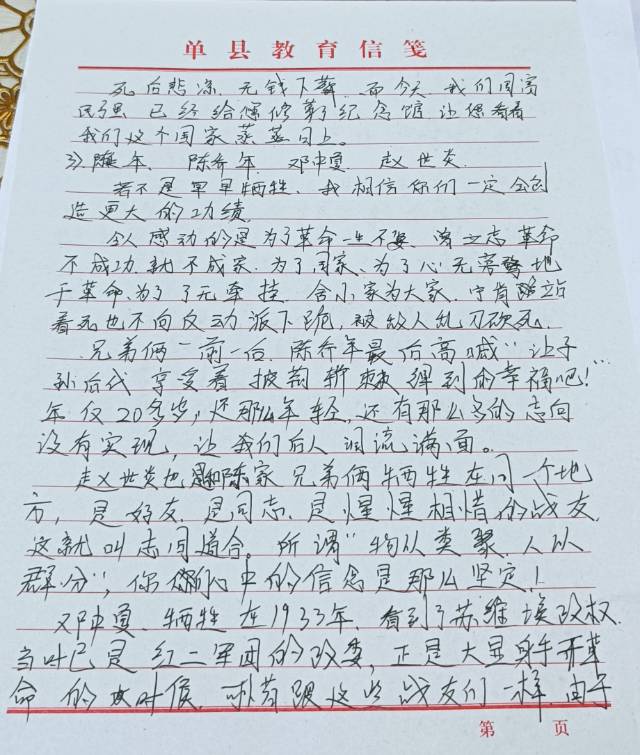 单县教育信笺
死后悲凉 无钱下葬 而今天 我们国富
民强 已经给您修葺了纪念馆 让您看看
我们这个国家蒸蒸日上。
3、陈延年 陈乔年 邓中夏 赵世炎
若不是军早牺牲、我相信你们一定会创
造更大的功绩
令人感动的是为了革命一生不娶 曾立志革命
不成功就不成家.为了国家、为了心无旁骛地
干革命、为了了无牵挂. 舍小家为大家.宁肯站立
着死也不向反动派下跪,被敌人乱刀砍死.
兄弟俩一前一后. 陈乔年最后高喊"让子
孙后代 享受着披荆斩棘得到的幸福吧!"
年仅20多岁,还那么年轻.还有那么多的志向
没有实现,让我们后人泪流满面。
赵世炎也是和陈家兄弟俩牺牲在同一个地
方,是好友.是同志.是惺惺相惜的战友.
这就叫志同道合。所谓"物以类聚.人以
群分",你们心中的信念是那么坚定!
邓中夏.牺牲在1933年.看到了苏维埃政权.
当时已是红二军团的政委,正是大显身手开革
命的大时候.可若跟这些战友们一样.由于
第 页